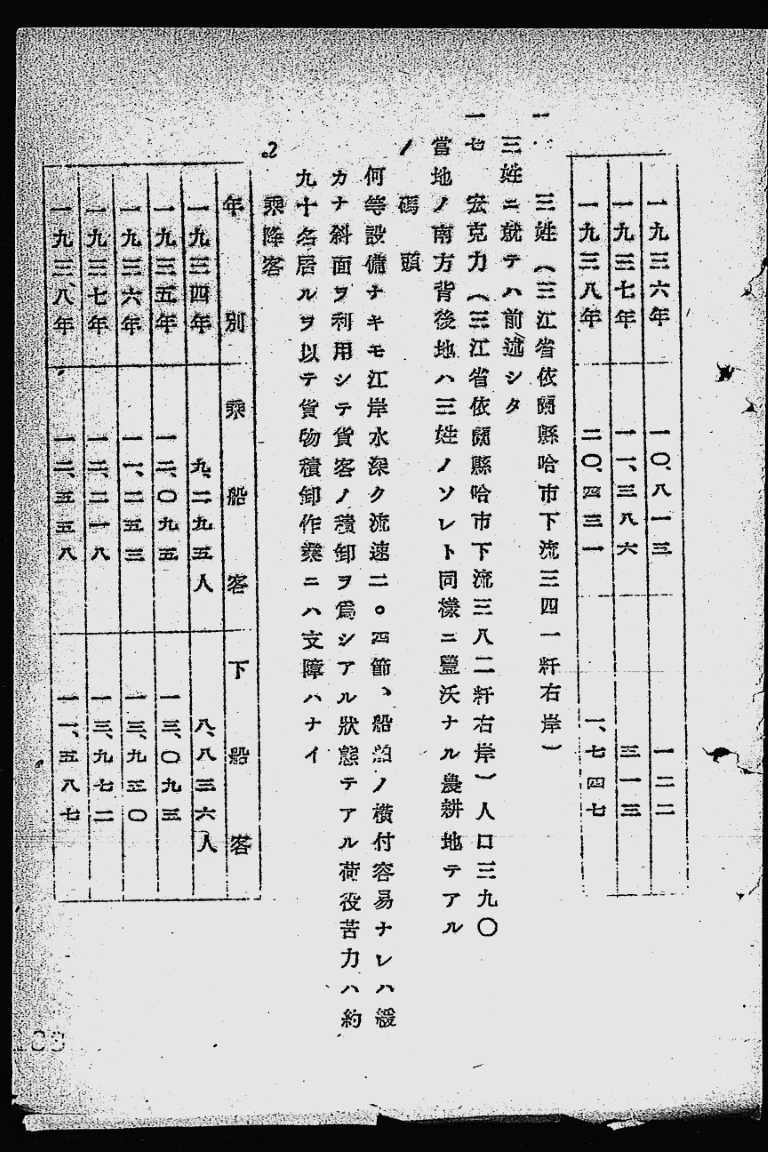 一九三六年 一〇、八一三 一二二
一九三七年 一一、三八六 三一三
一九三八年 二〇、四三一 一、七四七
一 三姓（三江省依蘭縣哈市下流三四一粁右岸）
三姓ニ就テハ前述シタ
一七 宏克力（三江省依蘭縣哈市下流三八二粁右岸）人口三九〇
當地ノ南方背後地ハ三姓ノソレト同樣ニ豐沃ナル農耕地テアル
1 碼頭
何等設備ナキモ江岸水深ク流速二。四節、船舶ノ横付容易ナレハ緩
カナ斜面ヲ利用シテ貨客ノ積卸ヲ爲シアル狀態テアル荷役苦力ハ約
九十名居ルヲ以テ貨物積卸作業ニハ支障ハナイ
2 乘降客
年別 乘船客 下船客
一九三四年 九、二九五人 八、八三六人
一九三五年 一二、〇九五 一三、〇九三
一九三六年 一一、二五三 一三、九三〇
一九三七年 一二、二一八 一三、九七二
一九三八年 一二、五五八 一一、五八七